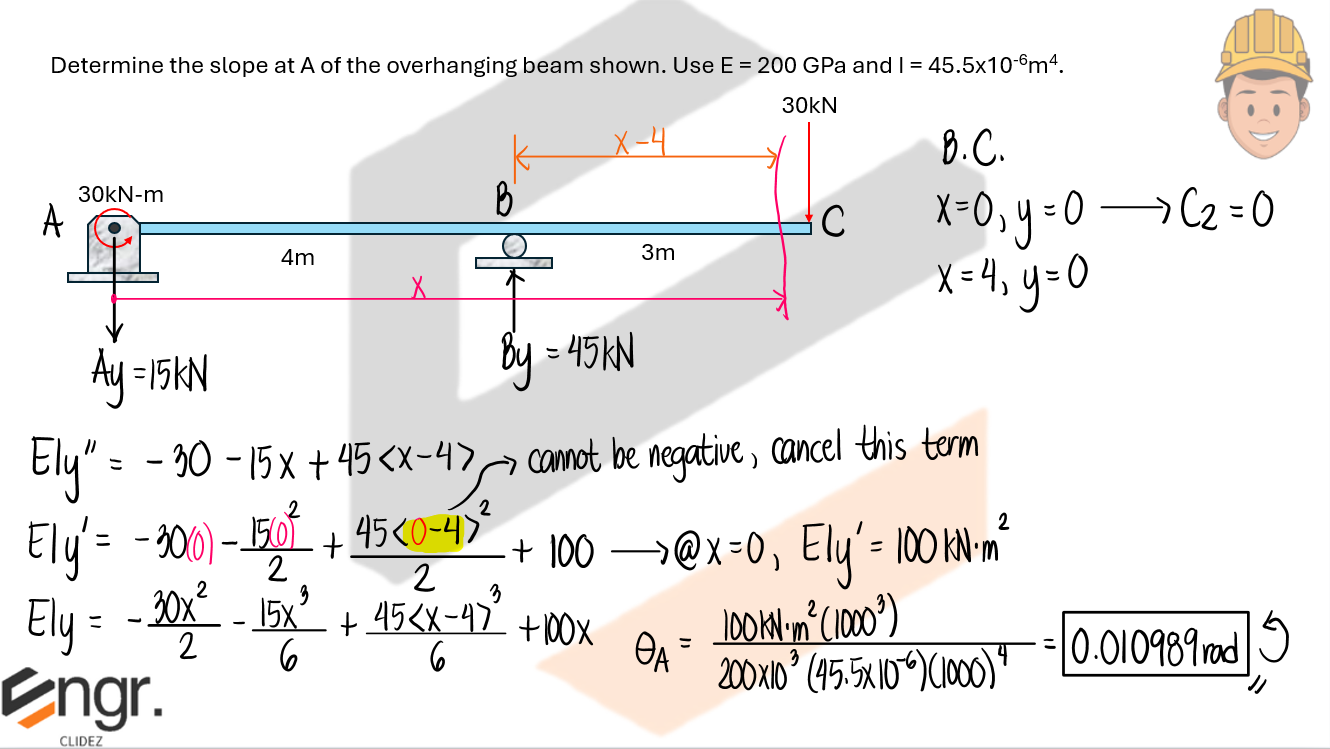 Determine the slope at A of the overhanging beam shown. Use E = 200 GPa and I = 45.5x10⁻⁶m⁴.
30kN
x-4
B.C.
30kN-m
A
B
C
x=0, y=0 → C₂ = 0
4m
3m
x=4, y=0
x
Ay=15kN
By = 45kN
EIy'' = -30 -15x + 45<x-4> → cannot be negative, cancel this term
EIy' = -30(0) - 15(0)²/2 + 45<0-4>²/2 + 100 → @x=0, EIy' = 100kN·m²
EIy = -30x²/2 - 15x³/6 + 45<x-4>³/6 + 100x
θA = 100kN·m²(1000³)/200x10³(45.5x10⁻⁶)(1000)⁴ = 0.010989rad
Engr.
CLIDEZ